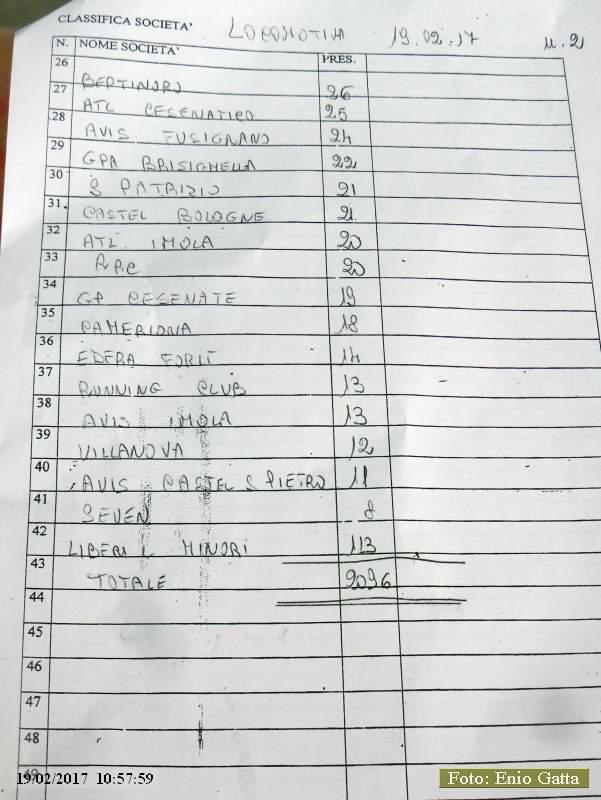 CLASSIFICA SOCIETA' LOCOMOTIVA 19.02.17 n.2
N. NOME SOCIETA' PRES.
26 BERTINORO 26
27 ATL CESENATICO 25
28 AVIS FUSIGNANO 24
29 GPA BRISIGHELLA 22
30 S PATRIZIO 21
31. CASTEL BOLOGNE 21
32 ATL. IMOLA 20
33 A.P.C 20
34 GP CESENATE 19
35 CAMERLONA 18
36 EDERA FORLÌ 14
37 RUNNING CLUB 13
38 AVIS IMOLA 13
39 VILLANOVA 12
40 AVIS CASTEL S PIETRO 11
41 SEVEN 8
42 LIBERI E MINORI 113
43 TOTALE 2096
44
45
46
47
48
49
19/02/2017 10:57:59
Foto: Enio Gatta